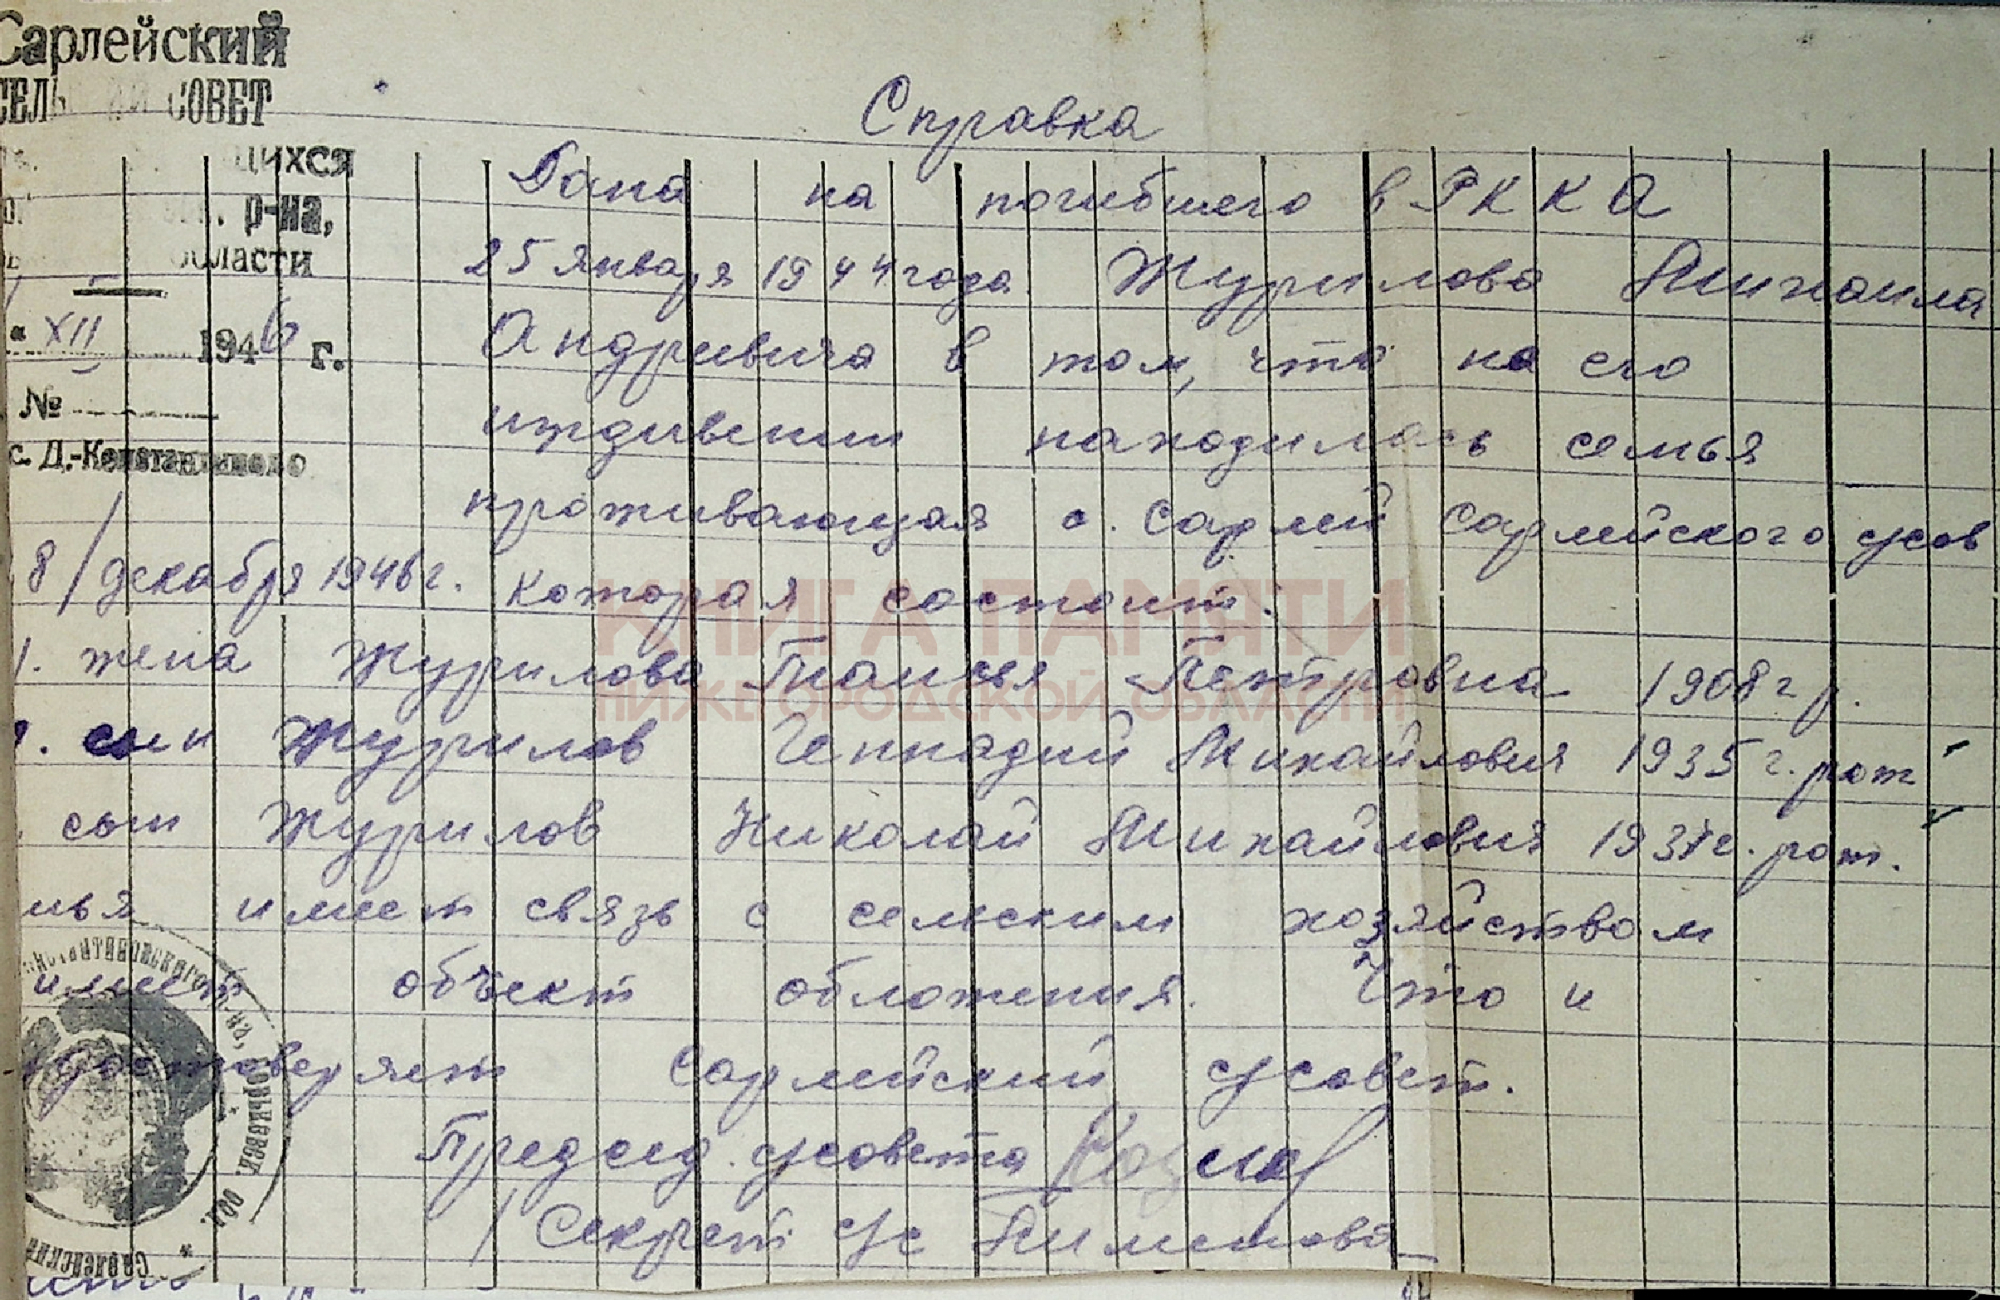 Сарлейский
СЕЛЬ ИЙ СОВЕТ
щихся
р-на,
области
" XII 1946 г.
№
с. Д.-Константиново
Справка
Дана на погибшего в РККА
25 января 1944 года Журилова Михаила
Андревича в том, что на его
иждивении находилась семья
проживающая с. Сарлей Сарлейского с/сов
8/декабря 1946 г. которая состоит:
1. жена Журилова Таисья Петровна 1908 г р.
. сын Журилов Геннадий Михайлович 1935 г. рож
. сын Журилов Николай Михайлович 1937 г. рож.
мья имеет связь с сельским хозяйством
имеет объект обложения. Что и
удостоверяет Сарлейский с/совет.
Председ. с/совета
Секрет с/с Пименова
КНИГА ПАМЯТИ
НИЖЕГОРОДСКОЙ ОБЛАСТИ